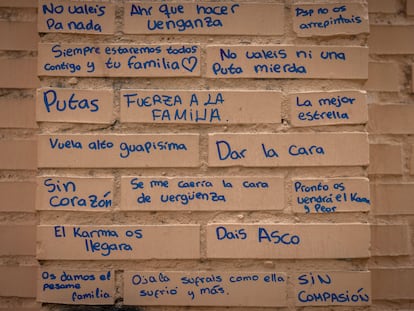 No valeis
pa nada
Ahr que hacer
venganza
Dsp no os
arrepintais
Siempre estaremos todos
contigo y tu familia♡
No valeis ni una
Puta mierda
Putas
FUERZA A LA
FAMILIA.
La mejor
estrella
Vuela alto guapisima
Dar la cara
Sin
corazón
Se me caerra la cara
de vergüenza
Pronto os
vendrá el Karma
y Peor
El Karma os
llegara
Dais Asco
Os damos el
pesame
familia
Ojala sufrais como ella
sufrio y más.
SiN
COMPASIÓN